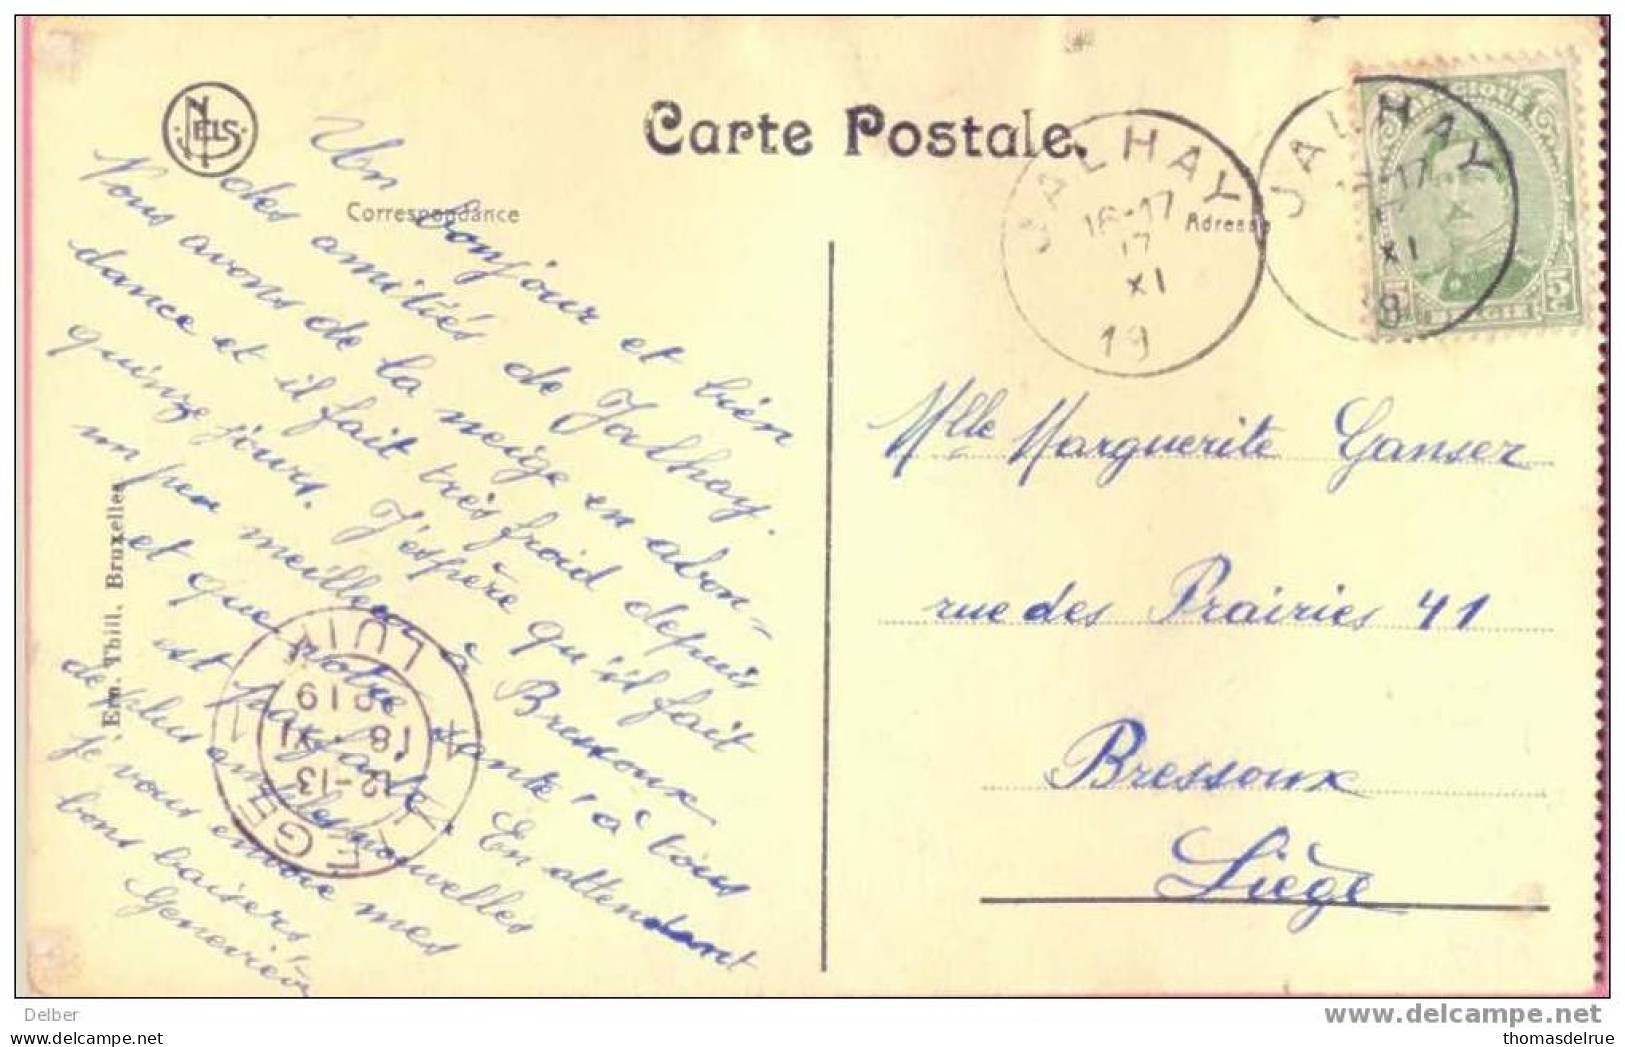 NELS
Carte Postale.
Correspondance
Adresse
JALHAY
16-17
17
XI
19
JALHAY
-17
XI
BELGIQUE
5
BELGIE
Un bonjour et bien
des amitiés de Jalhay.
Vous avons de la neige en abon-
dance et il fait très froid depuis
quinze jours. J'espère qu'il fait
un peu meilleur à Bressoux
et que votre santé à tous
est parfaite. En attendant
de plus amples nouvelles
je vous envoie mes
bons baisers,
Geneviève
Mlle Marguerite Ganser
rue des Prairies 41
Bressoux
Liège
Ern. Thill, Bruxelles
LUIK
1919
18 XI
12-13
LIEGE
1
Delber
www.delcampe.net
thomasdelrue